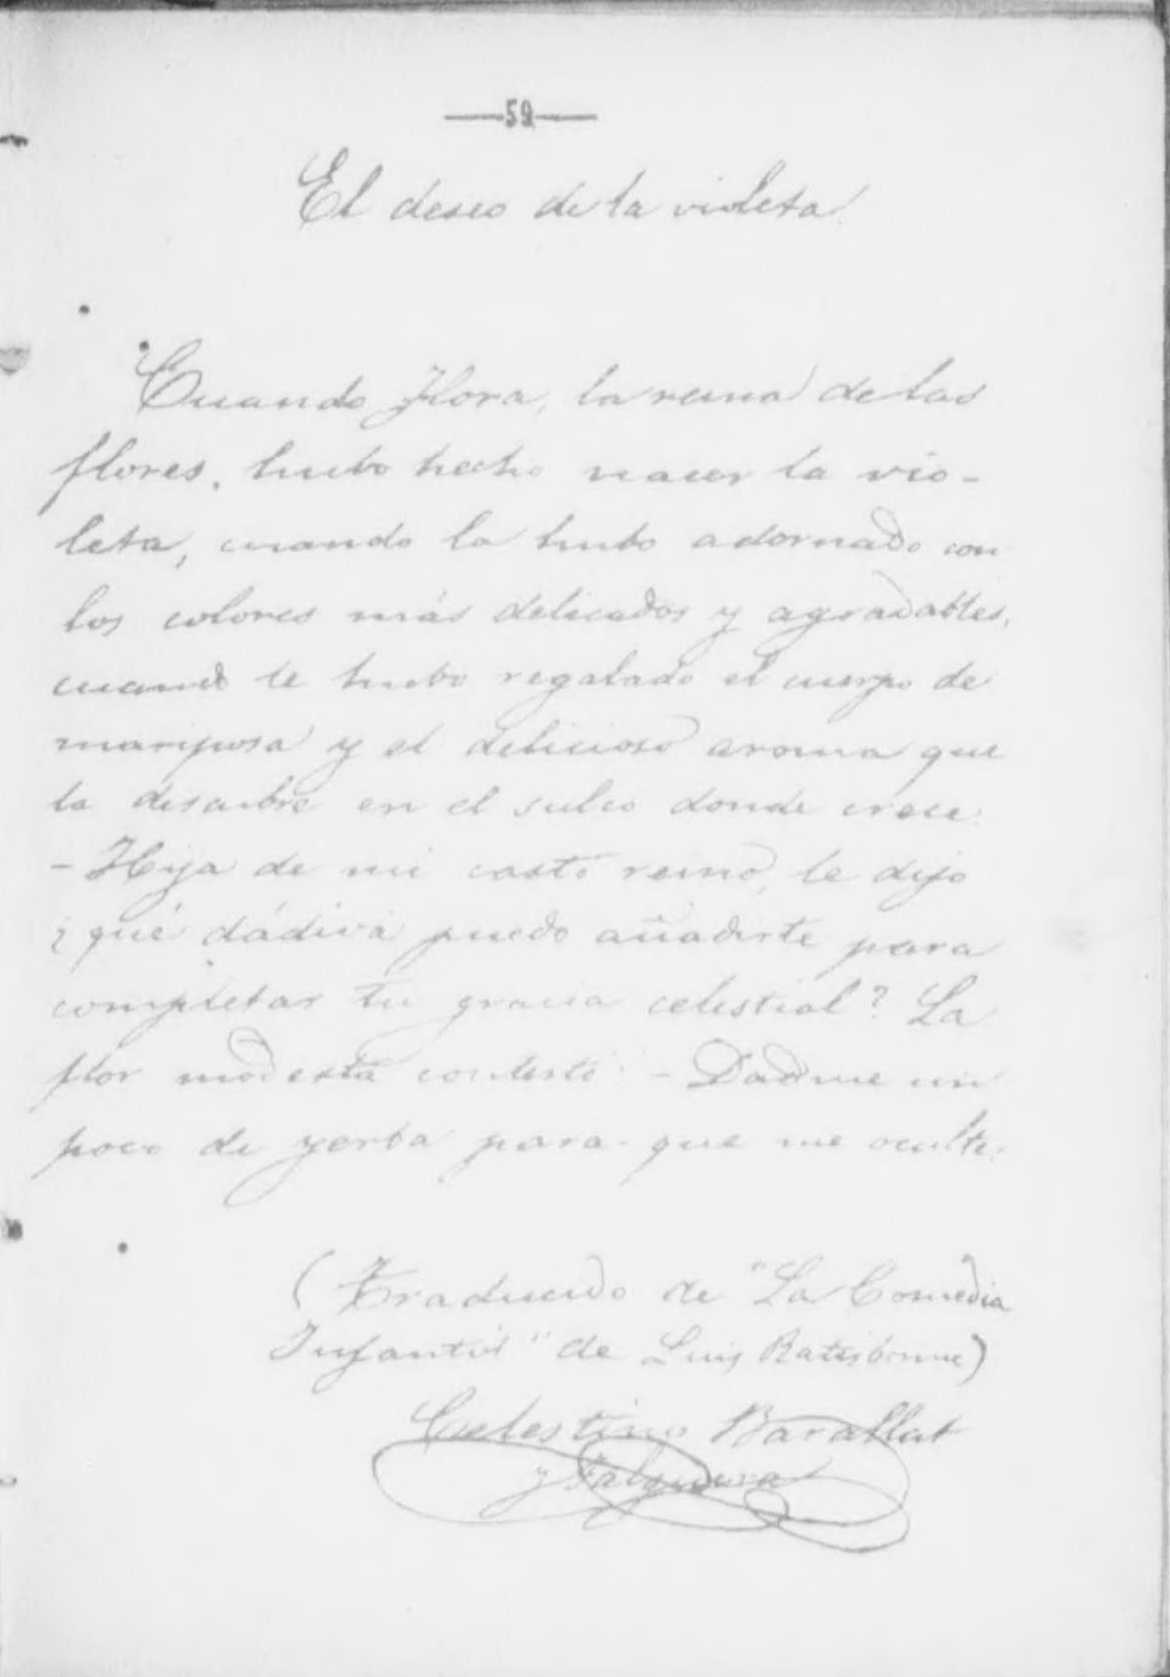 —59—
El deseo de la violeta.
Cuando Flora, la reina de las
flores, hubo hecho nacer la vio-
leta, cuando la hubo adornado con
los colores más delicados y agradables,
cuando le hubo regalado el cuerpo de
mariposa y el delicioso aroma que
la descubre en el sulco donde crece.
– Hija de mi casto reino, le dijo
¿qué dádiva puedo añadirte para
completar tu gracia celestial? La
flor modesta contestó: – Dadme un
poco de yerba para que me oculte.
(Traducido de "La Comedia
Infantil" de Luis Ratisbonne)
Celestino Barallat
y Falguera